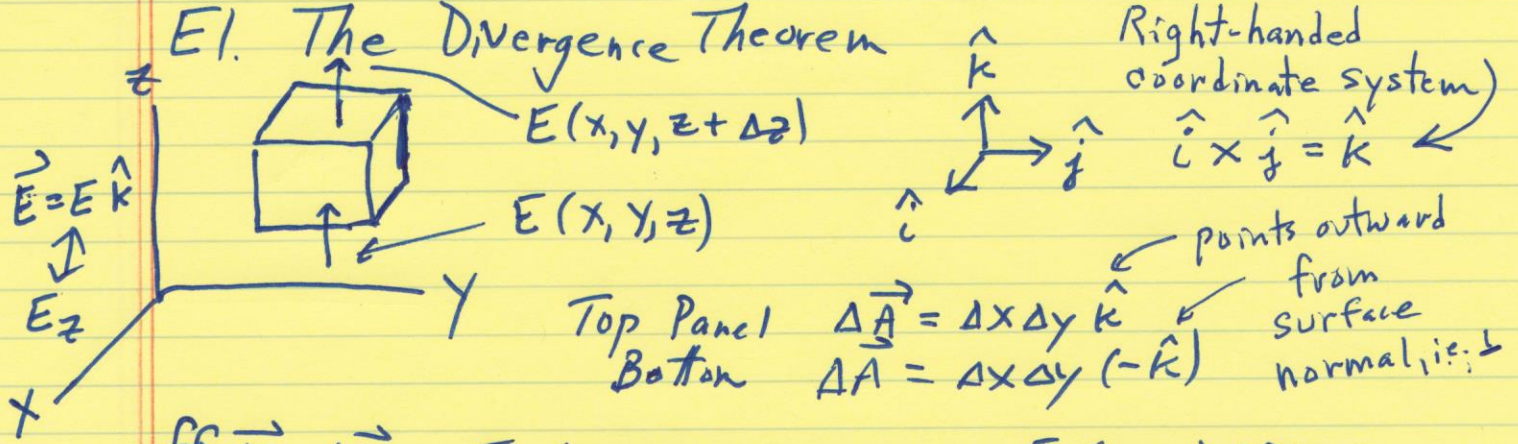 E1. The Divergence Theorem
Right-handed
coordinate system
z
E(x, y, z + Δz)
k̂
ĵ
î
î × ĵ = k̂
E⃗ = E k̂
↕
E_z
E(x, y, z)
points outward
from
surface
normal, i.e., ⊥
Y
X
Top Panel ΔA⃗ = Δx Δy k̂
Bottom ΔA⃗ = Δx Δy (-k̂)